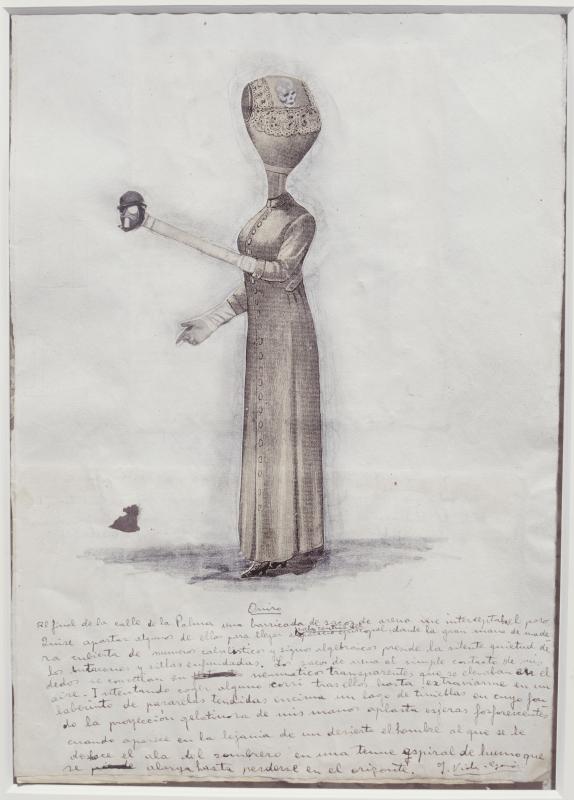 Oniro
Al final de la calle de la Palma una barricada de sacos de arena me interceptaba el paso
Quise apartar algunos de ellos para llegar al palacio episcopal, donde la gran mano de made
ra cubierta de numeros cabalisticos y signos algebraicos preside la silente quietud de
los butacones y sillas enfundadas. Los sacos de arena al simple contacto de mis
dedos se convertian en neumaticos transparentes que se elevaban en el
aire. I intentando coger alguno corri tras ellos hasta extraviarme en un
laberinto de paredes tendidas encima un lago de tinieblas en cuyo fon
do la proyección gelatinosa de mis manos aplasta esferas fosforescentes
cuando aparece en la lejania de un desierto el hombre al que se le
deshace el ala del sombrero en una tenue espiral de humo que
se alarga hasta perderse en el orizonte.